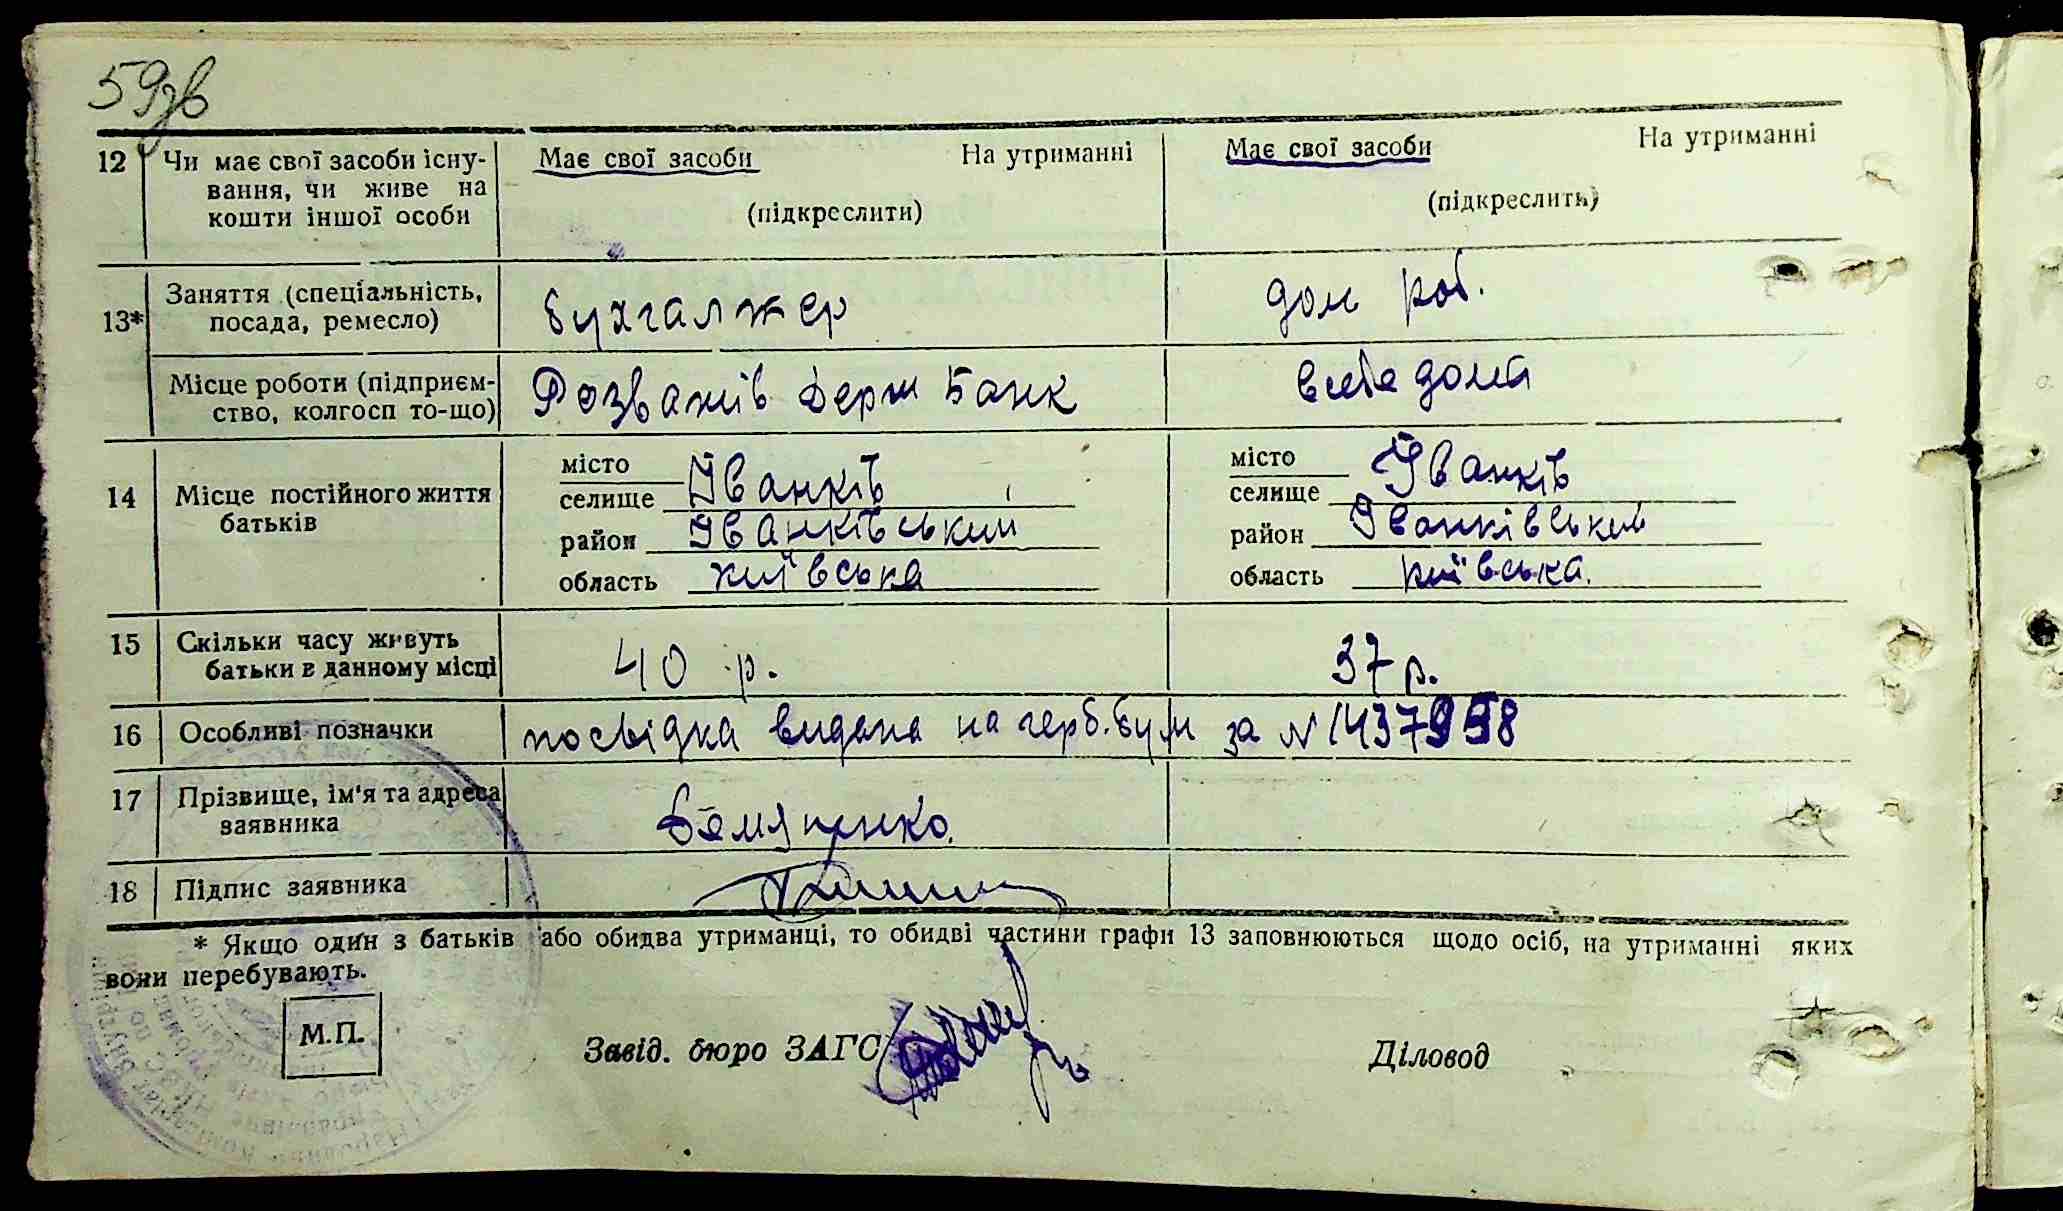 59зв
12 Чи має свої засоби існу- Має свої засоби На утриманні Має свої засоби На утриманні
вання, чи живе на
кошти іншої особи (підкреслити) (підкреслить)
13* Заняття (спеціальність, бухгалтер дом роб.
посада, ремесло)
Місце роботи (підприєм- Розважів Держ Банк в себе дома
ство, колгосп то-що)
14 Місце постійного життя місто Іванків місто Іванків
батьків селище селище
район Іванківський район Іванківський
область київська область київська.
15 Скільки часу живуть 40 р. 37 р.
батьки в данному місці
16 Особливі позначки посвідка видана на герб. бум за № 1437958
17 Прізвище, ім'я та адреса
заявника
18 Підпис заявника
* Якщо один з батьків або обидва утриманці, то обидві частини графи 13 заповнюються щодо осіб, на утриманні яких
вони перебувають.
М.П. Завід. бюро ЗАГС Діловод